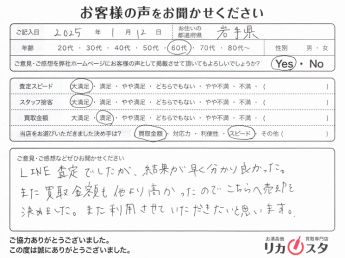 お客様の声をお聞かせください
ご記入日 2025年 1月 12日 お住いの都道府県 岩手県
年齢 20代・30代・40代・50代・60代・70代・80代～ 性別 男・女
ご意見・ご感想を弊社ホームページにお客様の声として掲載させて頂いてもよろしいでしょうか? Yes・No
査定スピード 大満足・満足・やや満足・どちらでもない・やや不満・不満・( )
スタッフ接客 大満足・満足・やや満足・どちらでもない・やや不満・不満・( )
買取金額 大満足・満足・やや満足・どちらでもない・やや不満・不満・( )
当店をお選びいただきました決め手は? 買取金額・対応力・利便性・スピード・その他( )
ご意見・ご感想などぜひお聞かせください
LINE査定でしたが、結果が早く分かり良かった。
また買取金額も他より高かったのでこちらへ売却を
決めました。また利用させていただきたいと思います。
ご協力ありがとうございました。
この度は誠にありがとうございました。
お酒高価買取専門店
リカスタ